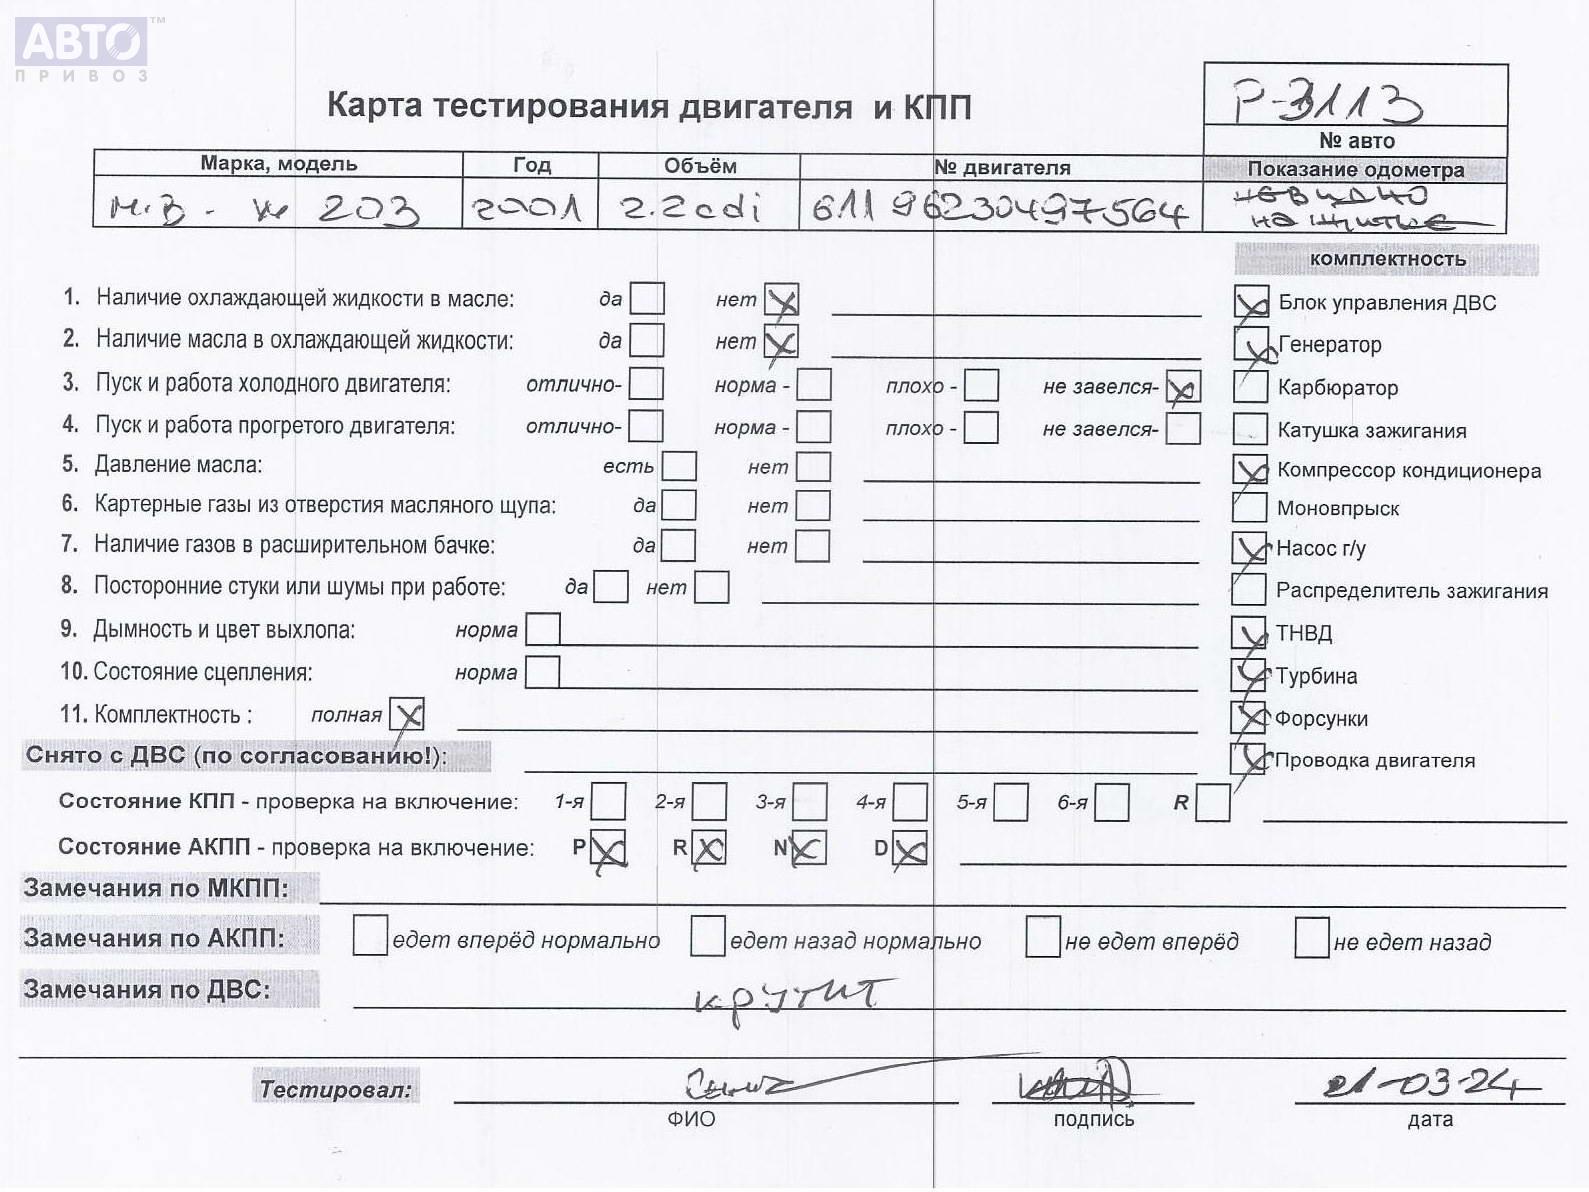 АВТО™
ПРИВОЗ
Карта тестирования двигателя и КПП
Р-3113
№ авто
Марка, модель Год Объём № двигателя Показание одометра
М.В - W 203 2001 2.2cdi 611 96230497564 не видно
на щитке
комплектность
1. Наличие охлаждающей жидкости в масле: да нет
Блок управления ДВС
2. Наличие масла в охлаждающей жидкости: да нет
Генератор
3. Пуск и работа холодного двигателя: отлично- норма - плохо - не завелся-
Карбюратор
4. Пуск и работа прогретого двигателя: отлично- норма - плохо - не завелся-
Катушка зажигания
5. Давление масла: есть нет
Компрессор кондиционера
6. Картерные газы из отверстия масляного щупа: да нет
Моновпрыск
7. Наличие газов в расширительном бачке: да нет
Насос г/у
8. Посторонние стуки или шумы при работе: да нет
Распределитель зажигания
9. Дымность и цвет выхлопа: норма
ТНВД
10. Состояние сцепления: норма
Турбина
11. Комплектность : полная
Форсунки
Снято с ДВС (по согласованию!):
Проводка двигателя
Состояние КПП - проверка на включение: 1-я 2-я 3-я 4-я 5-я 6-я R
Состояние АКПП - проверка на включение: P R N D
Замечания по МКПП:
Замечания по АКПП: едет вперёд нормально едет назад нормально не едет вперёд не едет назад
Замечания по ДВС: крутит
Тестировал: 21-03-24
ФИО подпись дата